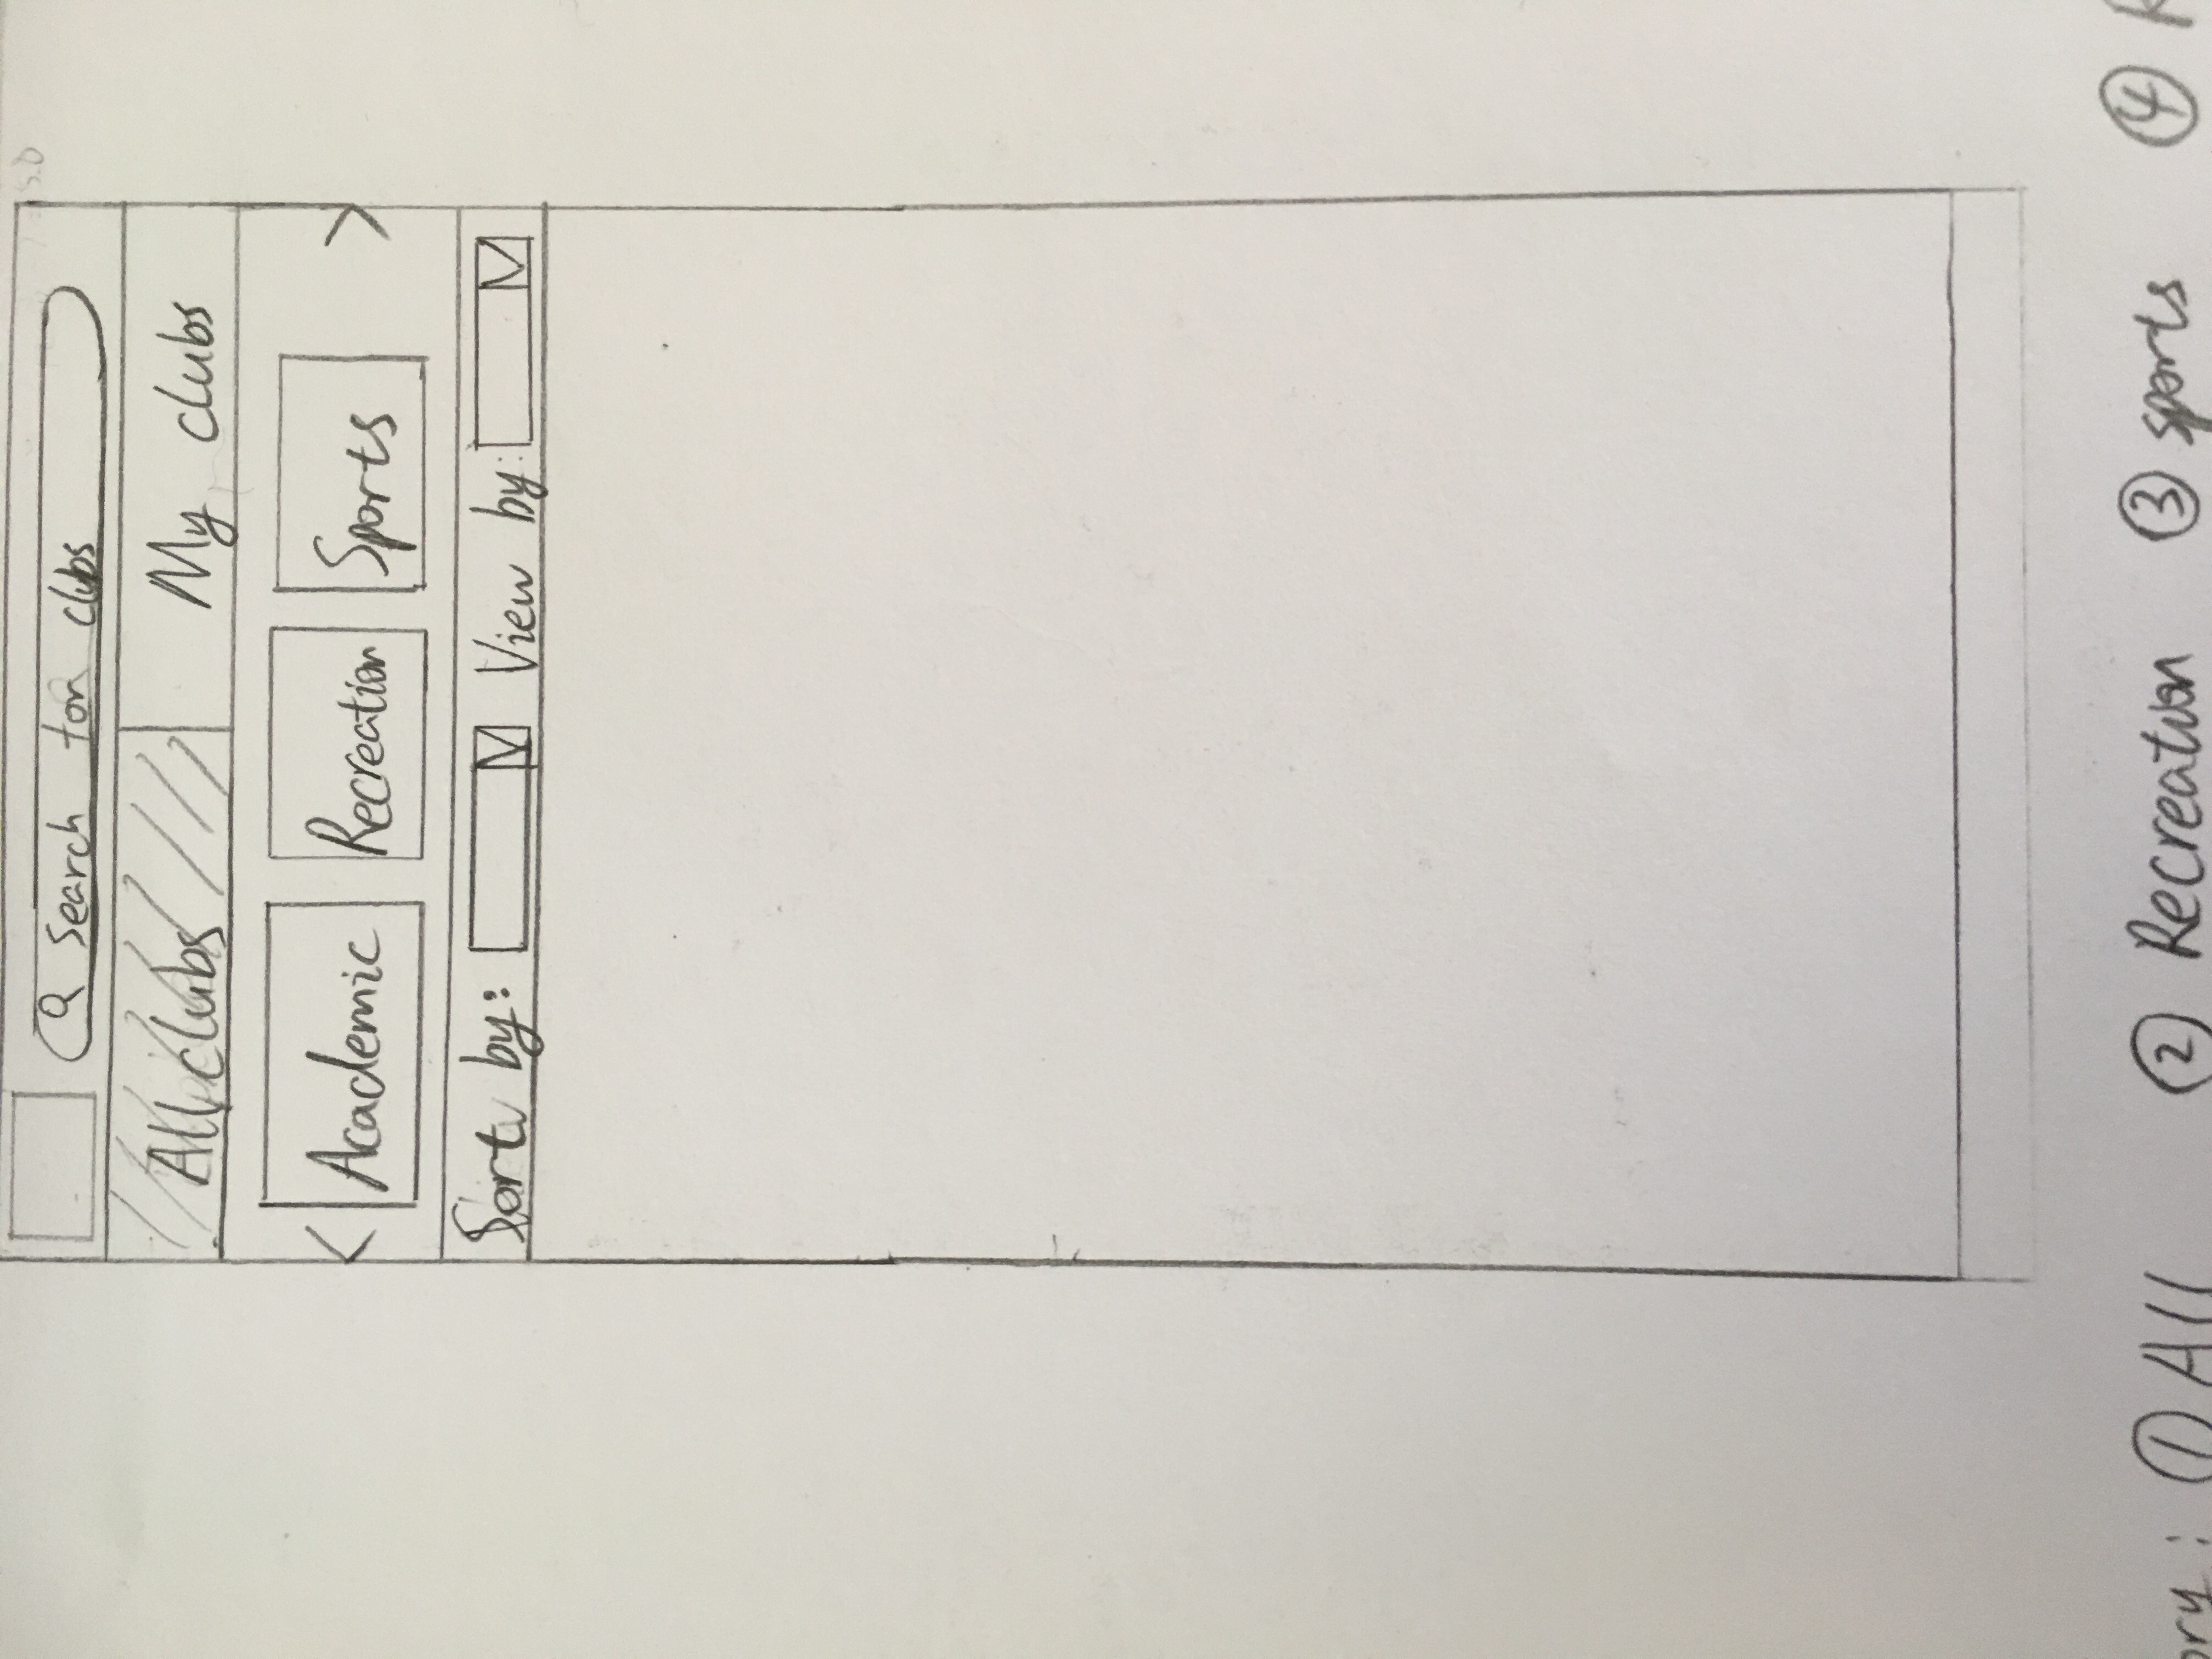 Search for clubs
All clubs My clubs
< Academic Recreation Sports >
Sort by: View by:
ory: ① All ② Recreation ③ sports ④ R